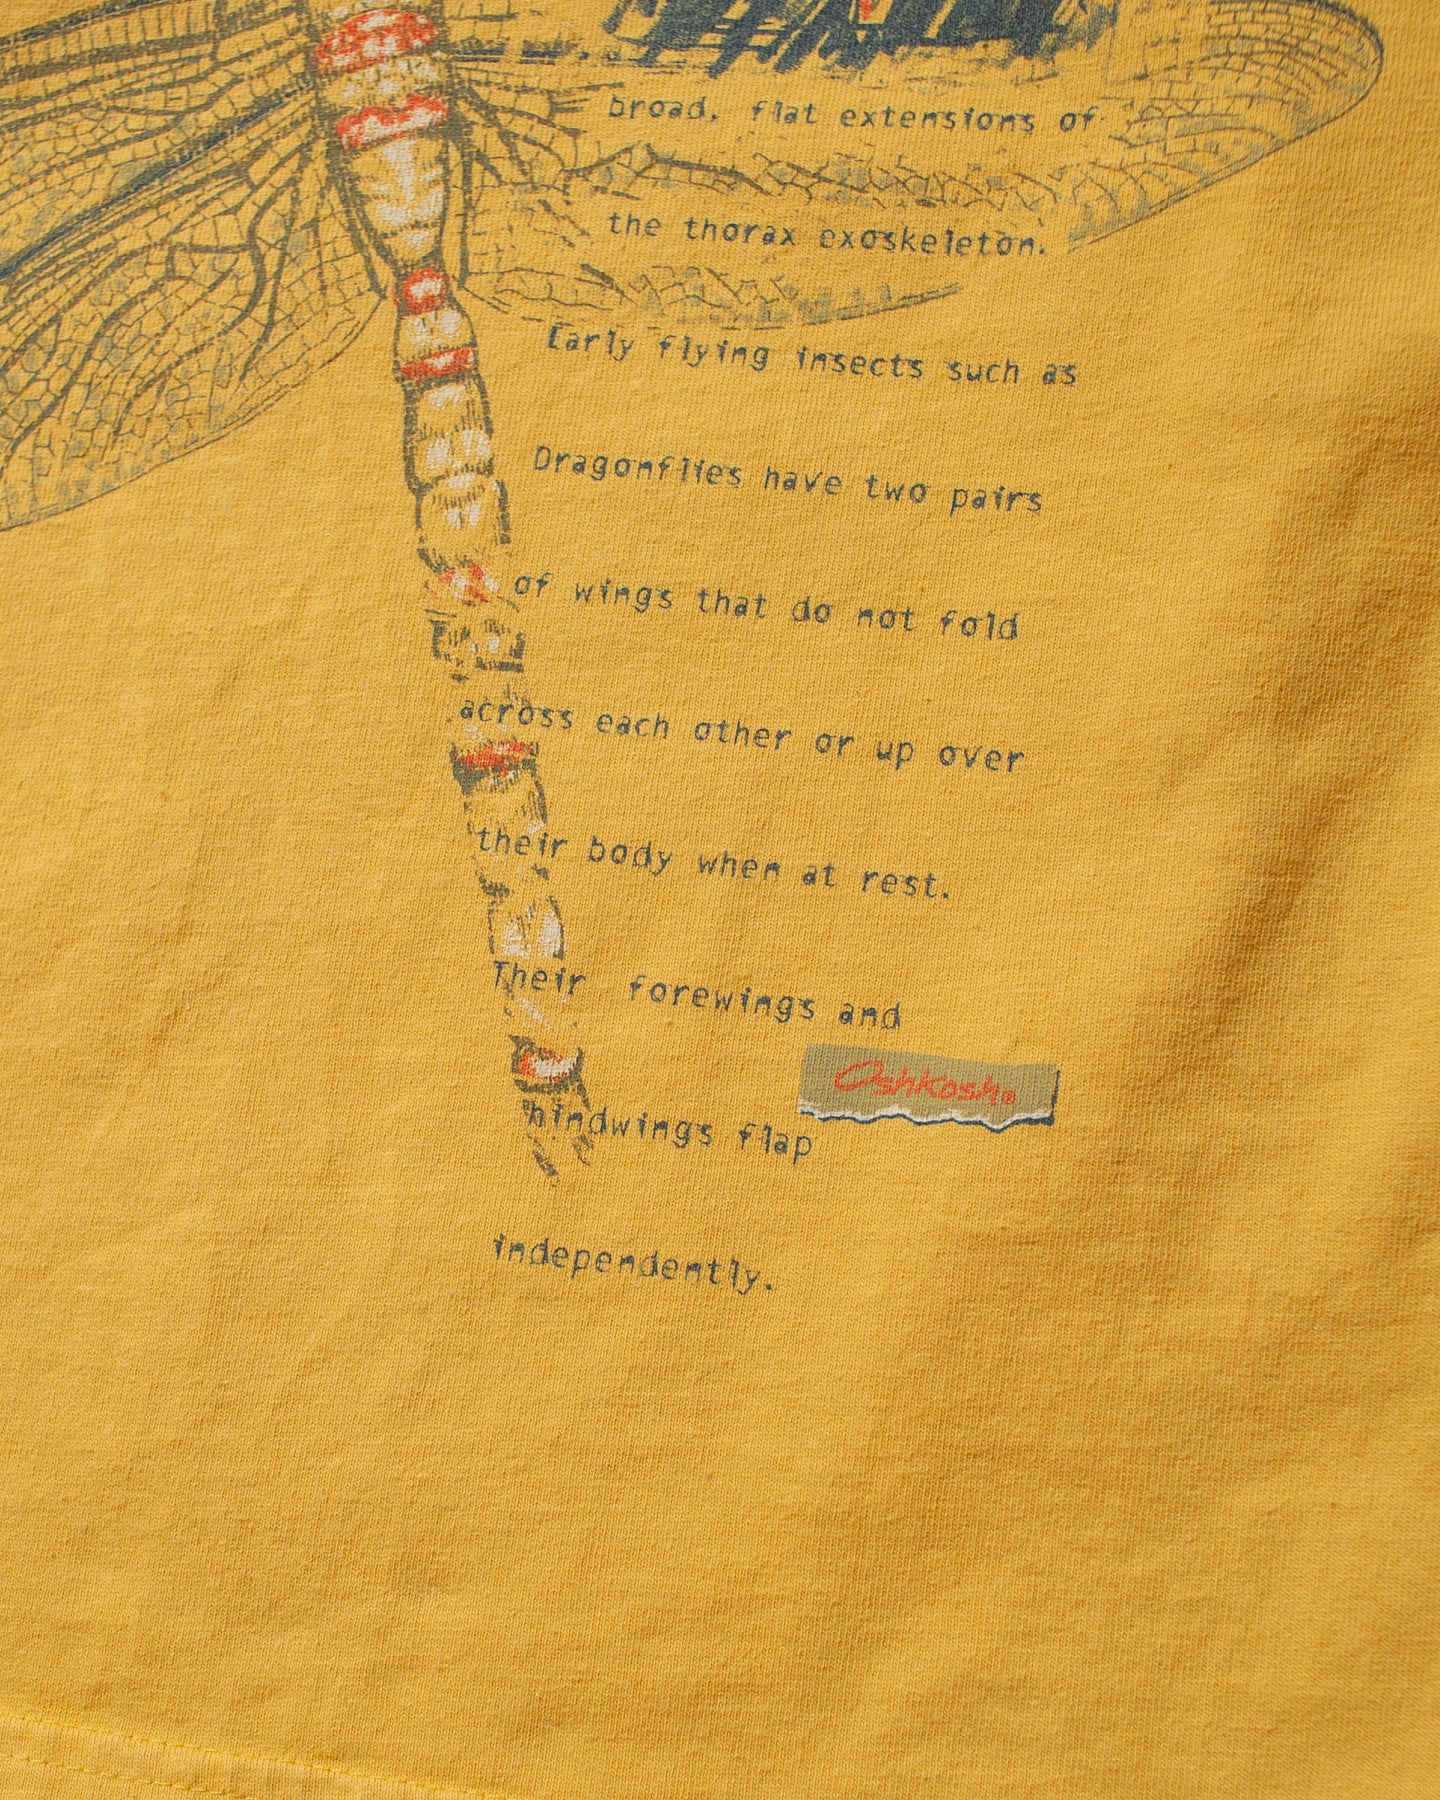 broad, flat extensions of
the thorax exoskeleton.
Early flying insects such as
Dragonflies have two pairs
of wings that do not fold
across each other or up over
their body when at rest.
Their forewings and
OshKosh®
hindwings flap
independently.